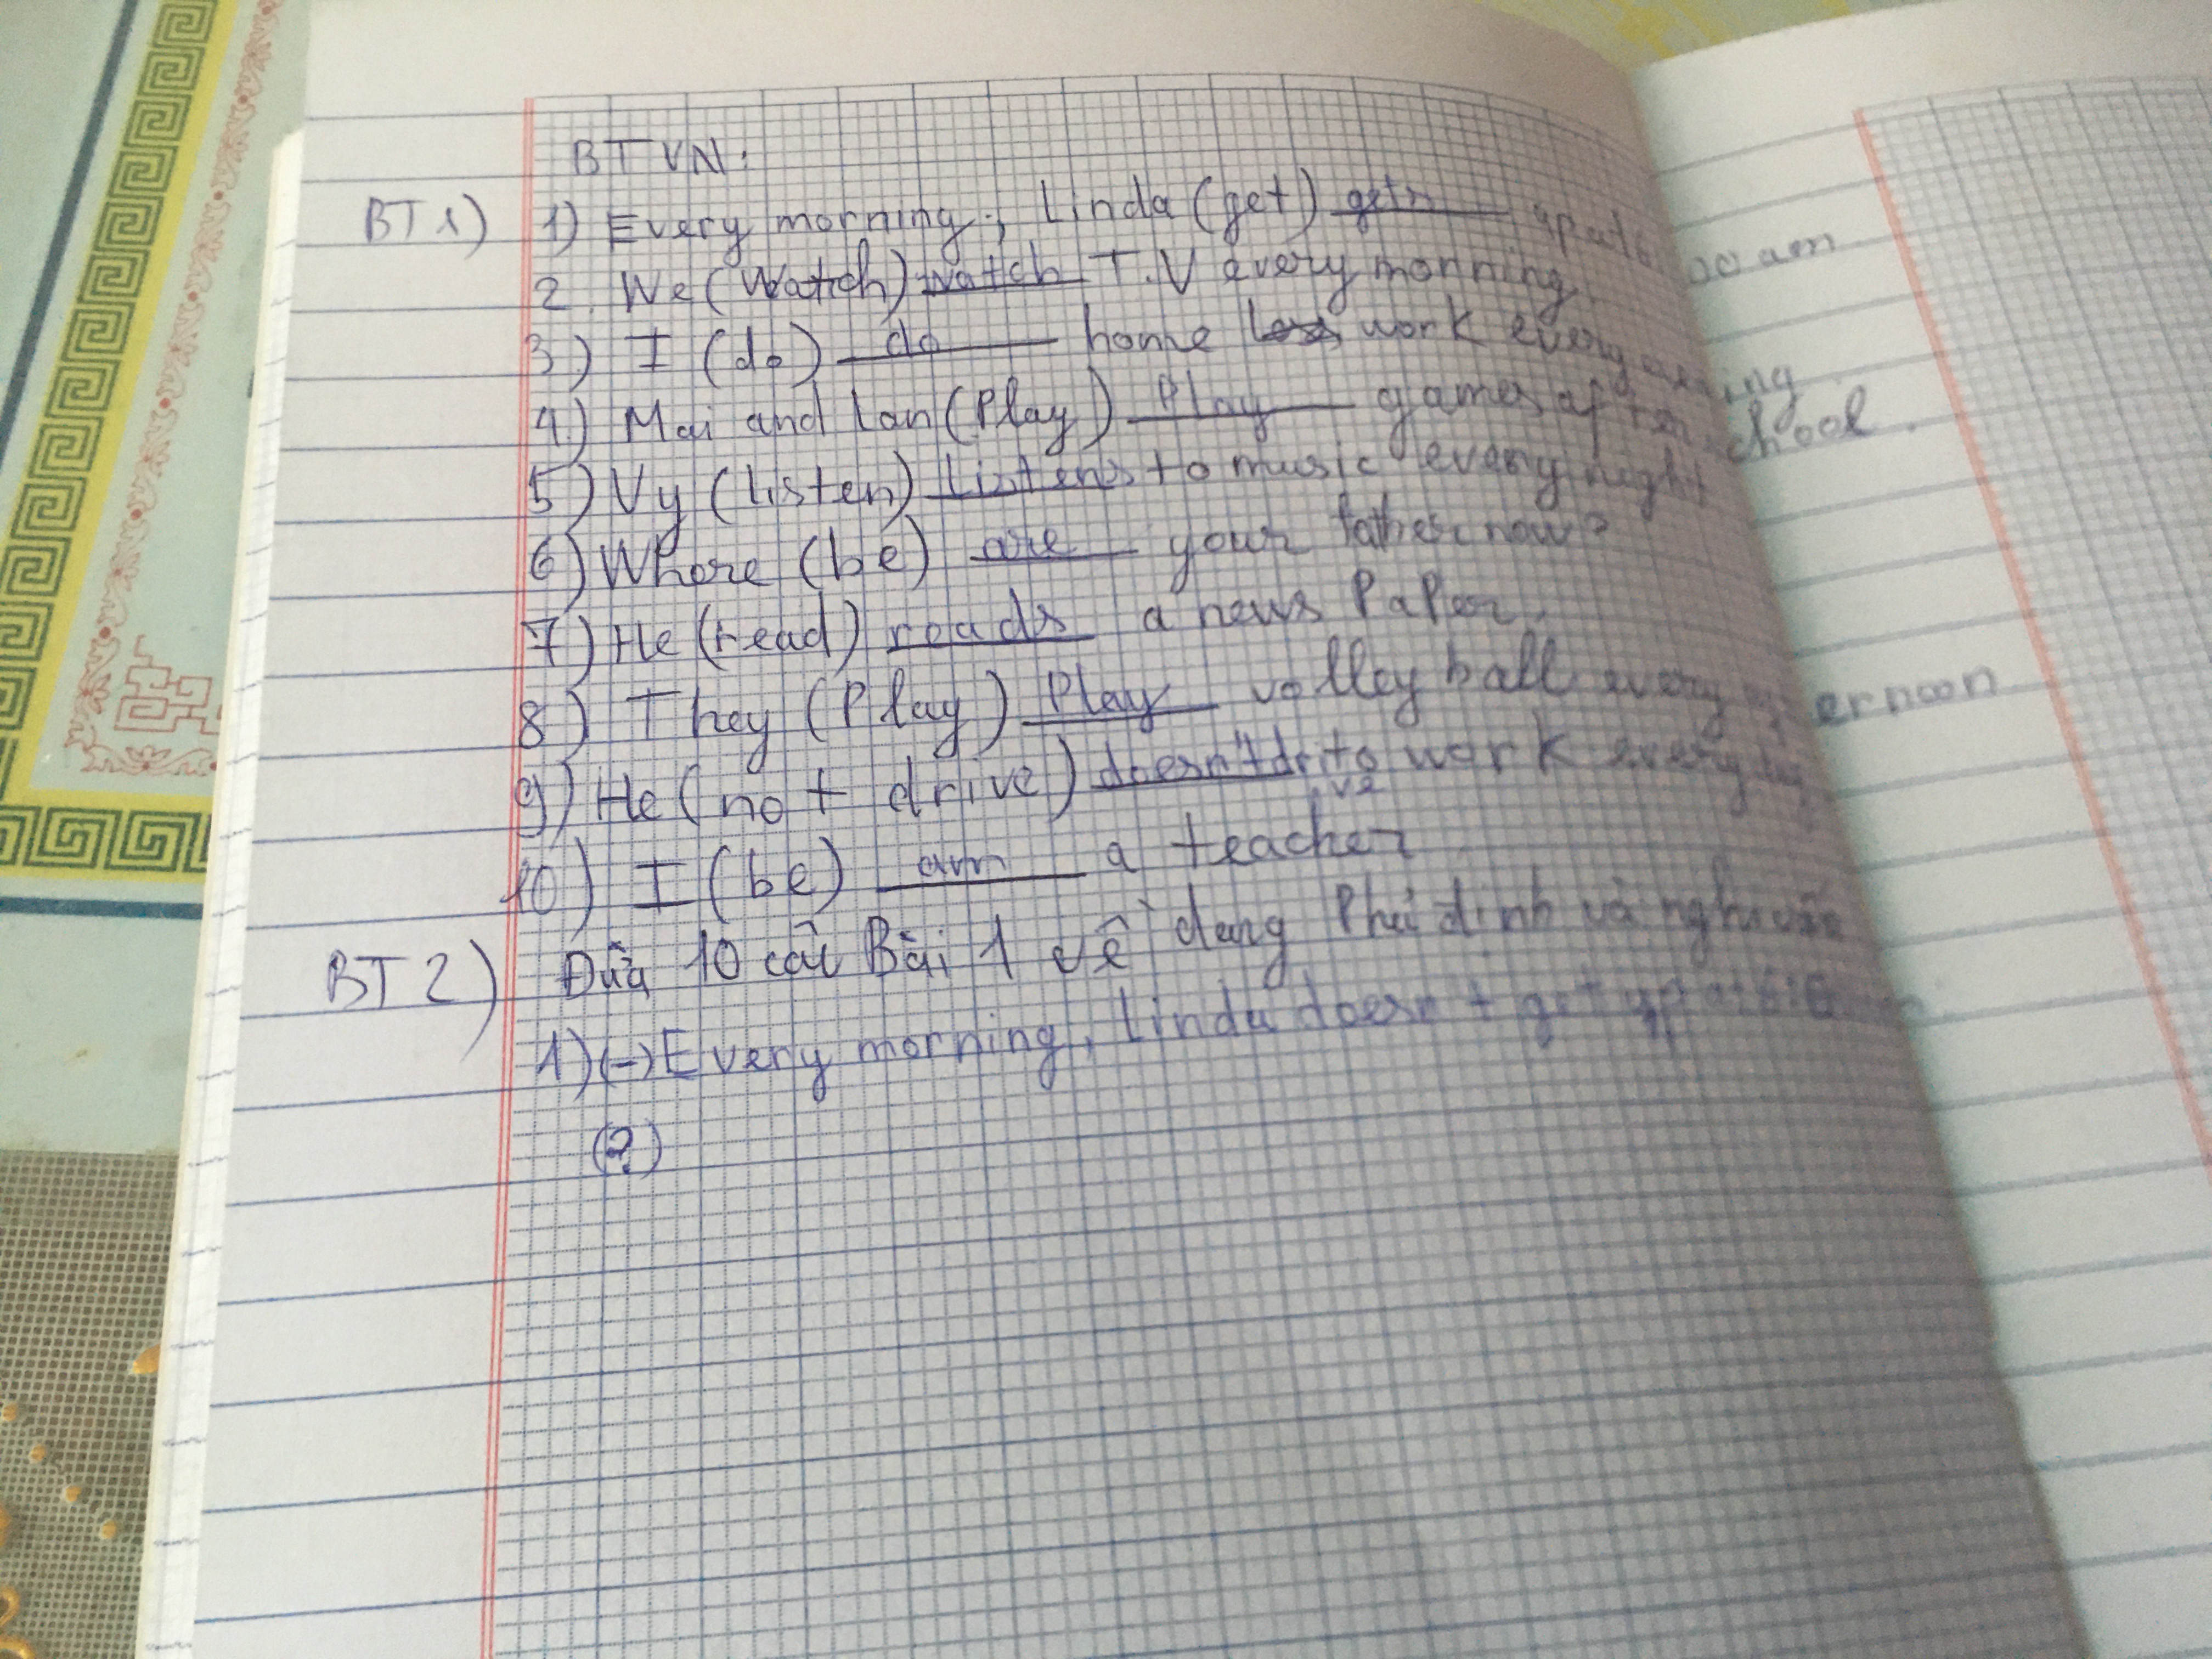 BTVN:
BT1) 1) Every morning, Linda (get) gets up at 6:00 am
2. We (Watch) watch T.V every morning.
3) I (do) do home work every evening
4) Mai and Lan (Play) Play games after school.
5) Vy (listen) listens to music every night
6) Where (be) are your father now?
7) He (read) reads a news PaPer.
8) They (Play) Play volley ball every afternoon
9) He (not drive) doesn't drive to work every day
10) I (be) am a teacher
BT2) Đưa 10 câu Bài 1 về dạng Phủ định và nghi vấn
1) (-) Every morning, Linda doesn't get up at
(?)